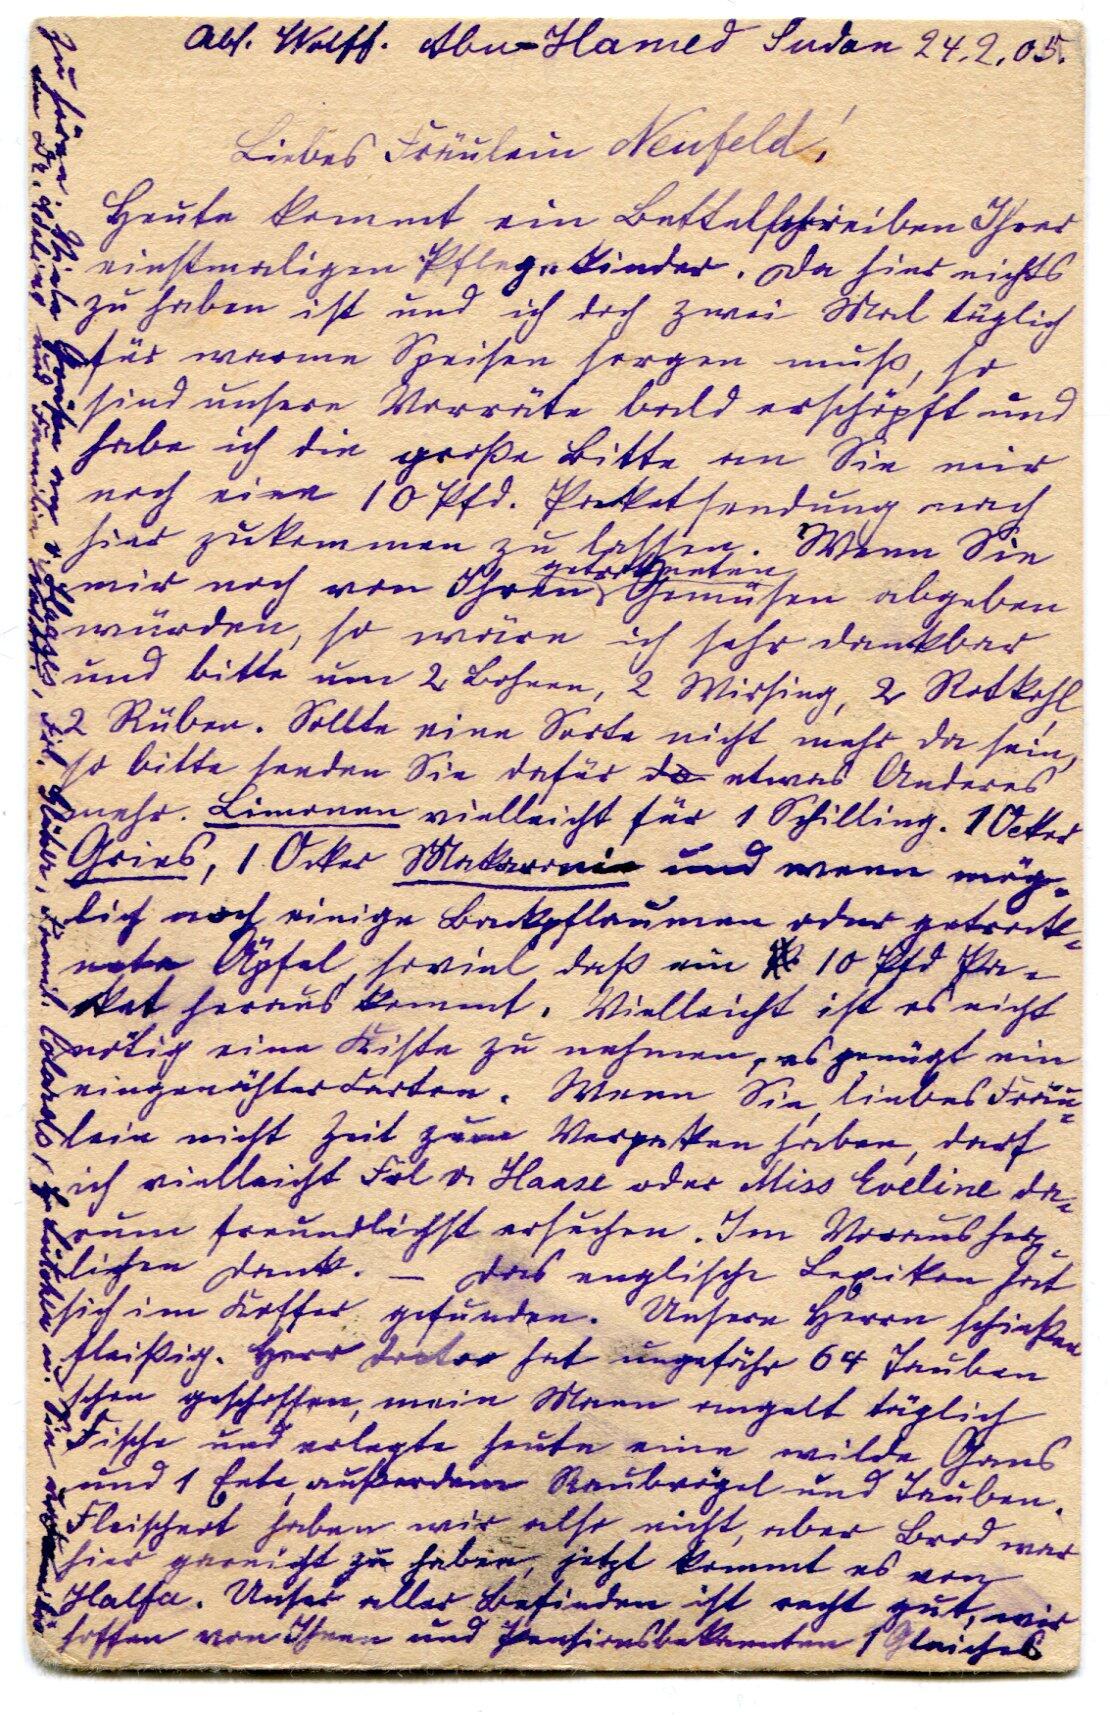 Abs. Wolff. Abu-Hamed Sudan 24.2.05.
Liebes Fräulein Neufeld!
Heute kommt ein Bettelschreiben Ihrer
einstmaligen Pflegekinder. Da hier nichts
zu haben ist und ich doch zwei Mal täglich
für warme Speisen sorgen muß, so
sind unsere Vorräte bald erschöpft und
habe ich die große Bitte an Sie mir
noch eine 10 Pfd. Packetsendung nach
hier zukommen zu lassen. Wenn Sie
mir noch von Ihren getrockneten Gemüsen abgeben
würden, so wäre ich sehr dankbar
und bitte um 2 Bohnen, 2 Wirsing, 2 Rotkohl
2 Rüben. Sollte eine Sorte nicht mehr da sein,
so bitte senden Sie dafür da etwas Anderes
mehr. Limonen vielleicht für 1 Schilling. 1 Ocker
Gries, 1 Ocker Makaronie und wenn mög-
lich noch einige Backpflaumen oder getrock-
nete Äpfel, soviel daß ein 10 Pfd Pa-
ket heraus kommt. Vielleicht ist es nicht
nötig eine Kiste zu nehmen, es genügt ein
eingenähter Carton. Wenn Sie, liebes Fräu-
lein nicht Zeit zum Verpacken haben, darf
ich vielleicht Frl v. Haase oder Miss Eveline da-
rum freundlichst ersuchen. Im Voraus herz-
lichen Dank. — Das englische Lexikon hat
sich im Koffer gefunden. Unsere Herrn schießen
fleißig. Herr Doctor hat ungefähr 64 Tauben
schon geschossen, mein Mann angelt täglich
Fische und erlegte heute eine wilde Gans
und 1 Ente, außerdem Raubvögel und Tauben.
Fleischnot haben wir also nicht, aber Brod war
hier garnicht zu haben, jetzt kommt es von
Halfa. Unser aller Befinden ist recht gut, wir
hoffen von Ihnen und Pensionsbekannten Gleiches
zu hören. Viele Grüße an v. Haases, Frl.
und Familie